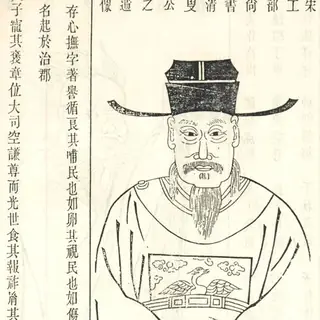 宋工部尚書清叟公之遺像
存心撫字著譽循良其哺民也如卵其視民也如傷
名起於治郡
子寵其襃章位大司空謙尊而光世食其報祚胤其